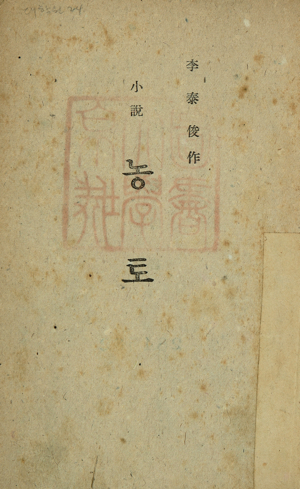 李泰俊作
小說
농토